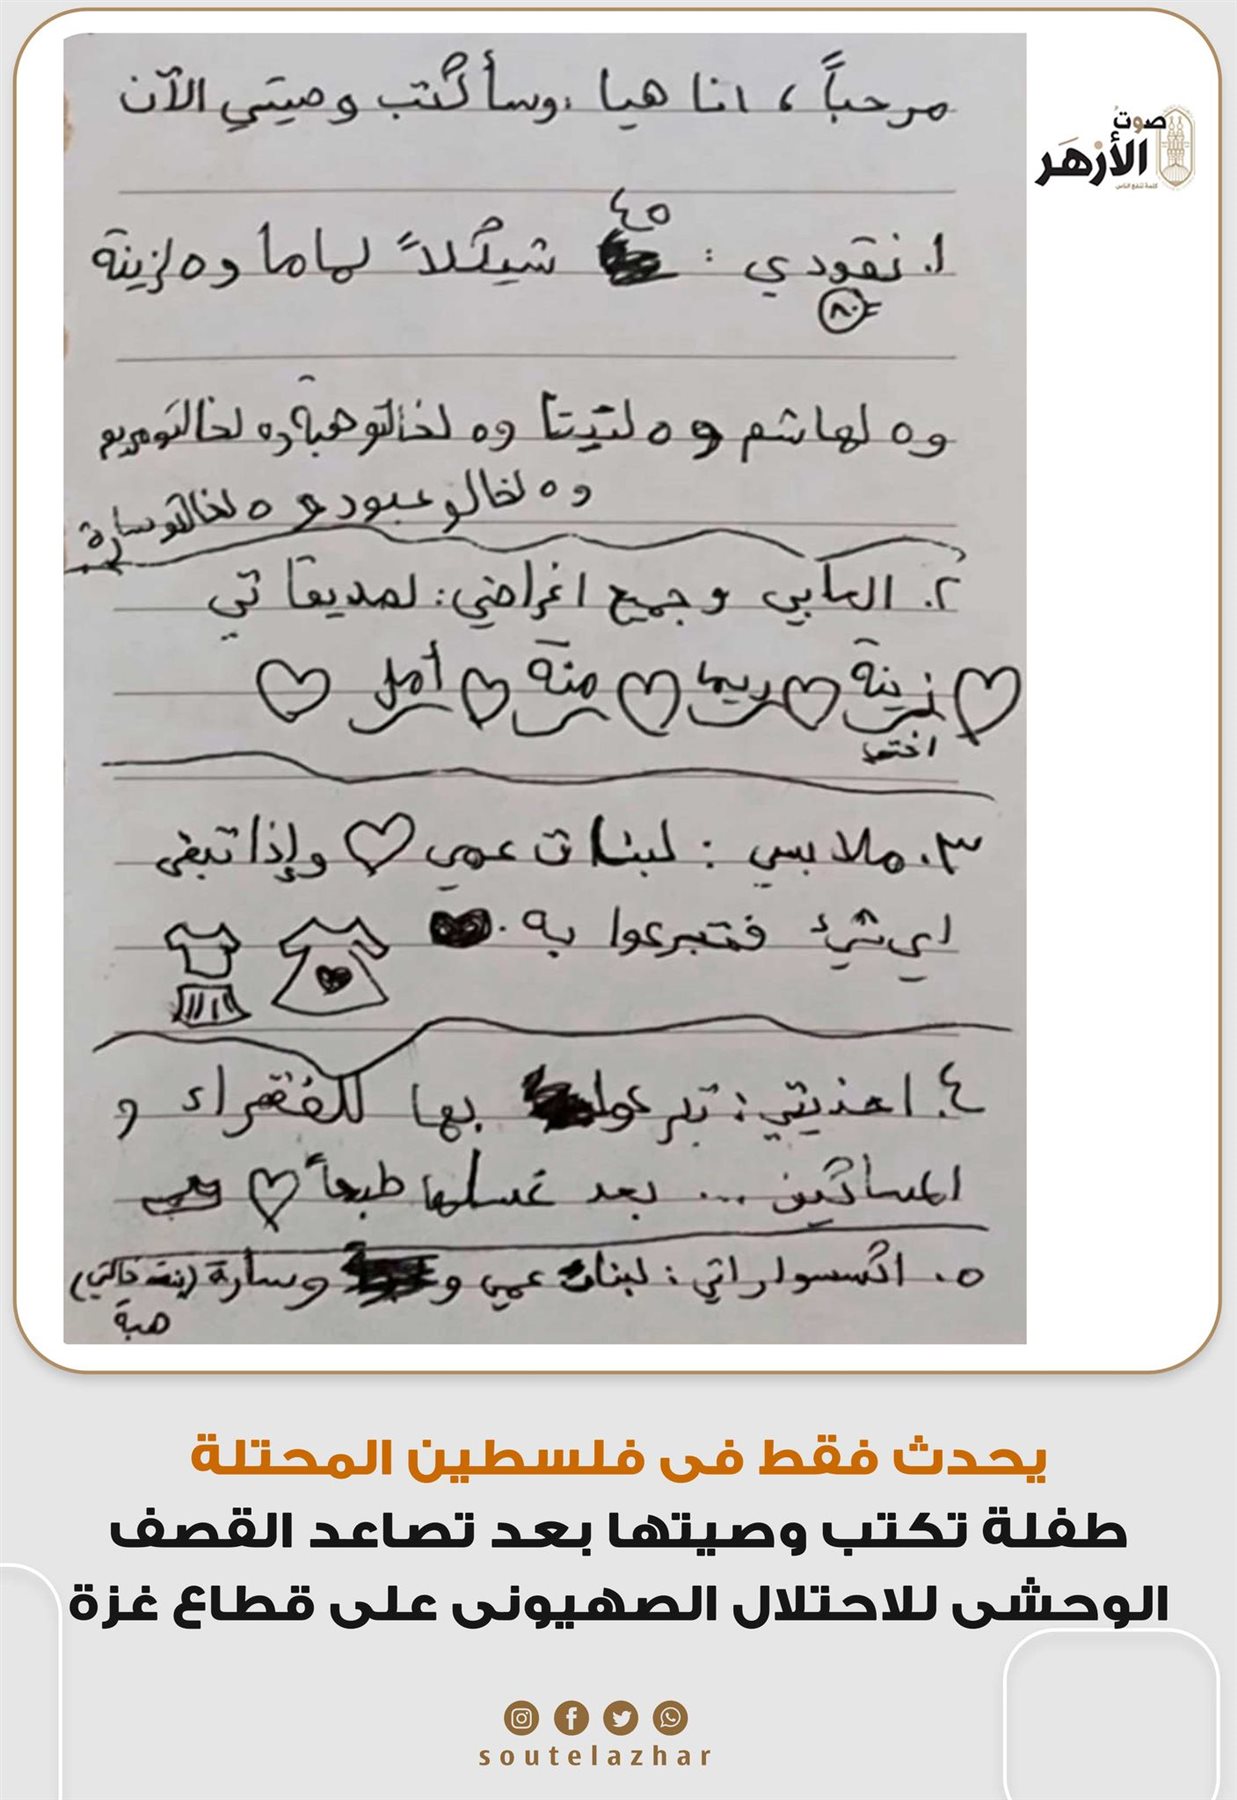 صوت
الأزهر
كلمة تنفع الناس
مرحباً، انا هيا، وسأكتب وصيتي الآن
٤٥
١. نقودي: شيكلاً لماما و٥ لزينة
٨٠
و٥ لهاشم و٥ لتيتا و٥ لخالتو هبة و٥ لخالتو مريم
و٥ لخالو عبود و٥ لخالتو سارة
٢. العابي وجميع اغراضي: لصديقاتي
زينة ريما منة أمل
اختي
٣. ملابسي: لبنات عمي وإذا تبقى
اي شيء فتبرعوا به.
٤. احذيتي: تبرعوا بها للفقراء و
المساكين... بعد غسلها طبعاً
٥. اكسسواراتي: لبنات عمي و وسارة (بنت خالتي)
هبة
يحدث فقط فى فلسطين المحتلة
طفلة تكتب وصيتها بعد تصاعد القصف
الوحشى للاحتلال الصهيونى على قطاع غزة
soutelazhar